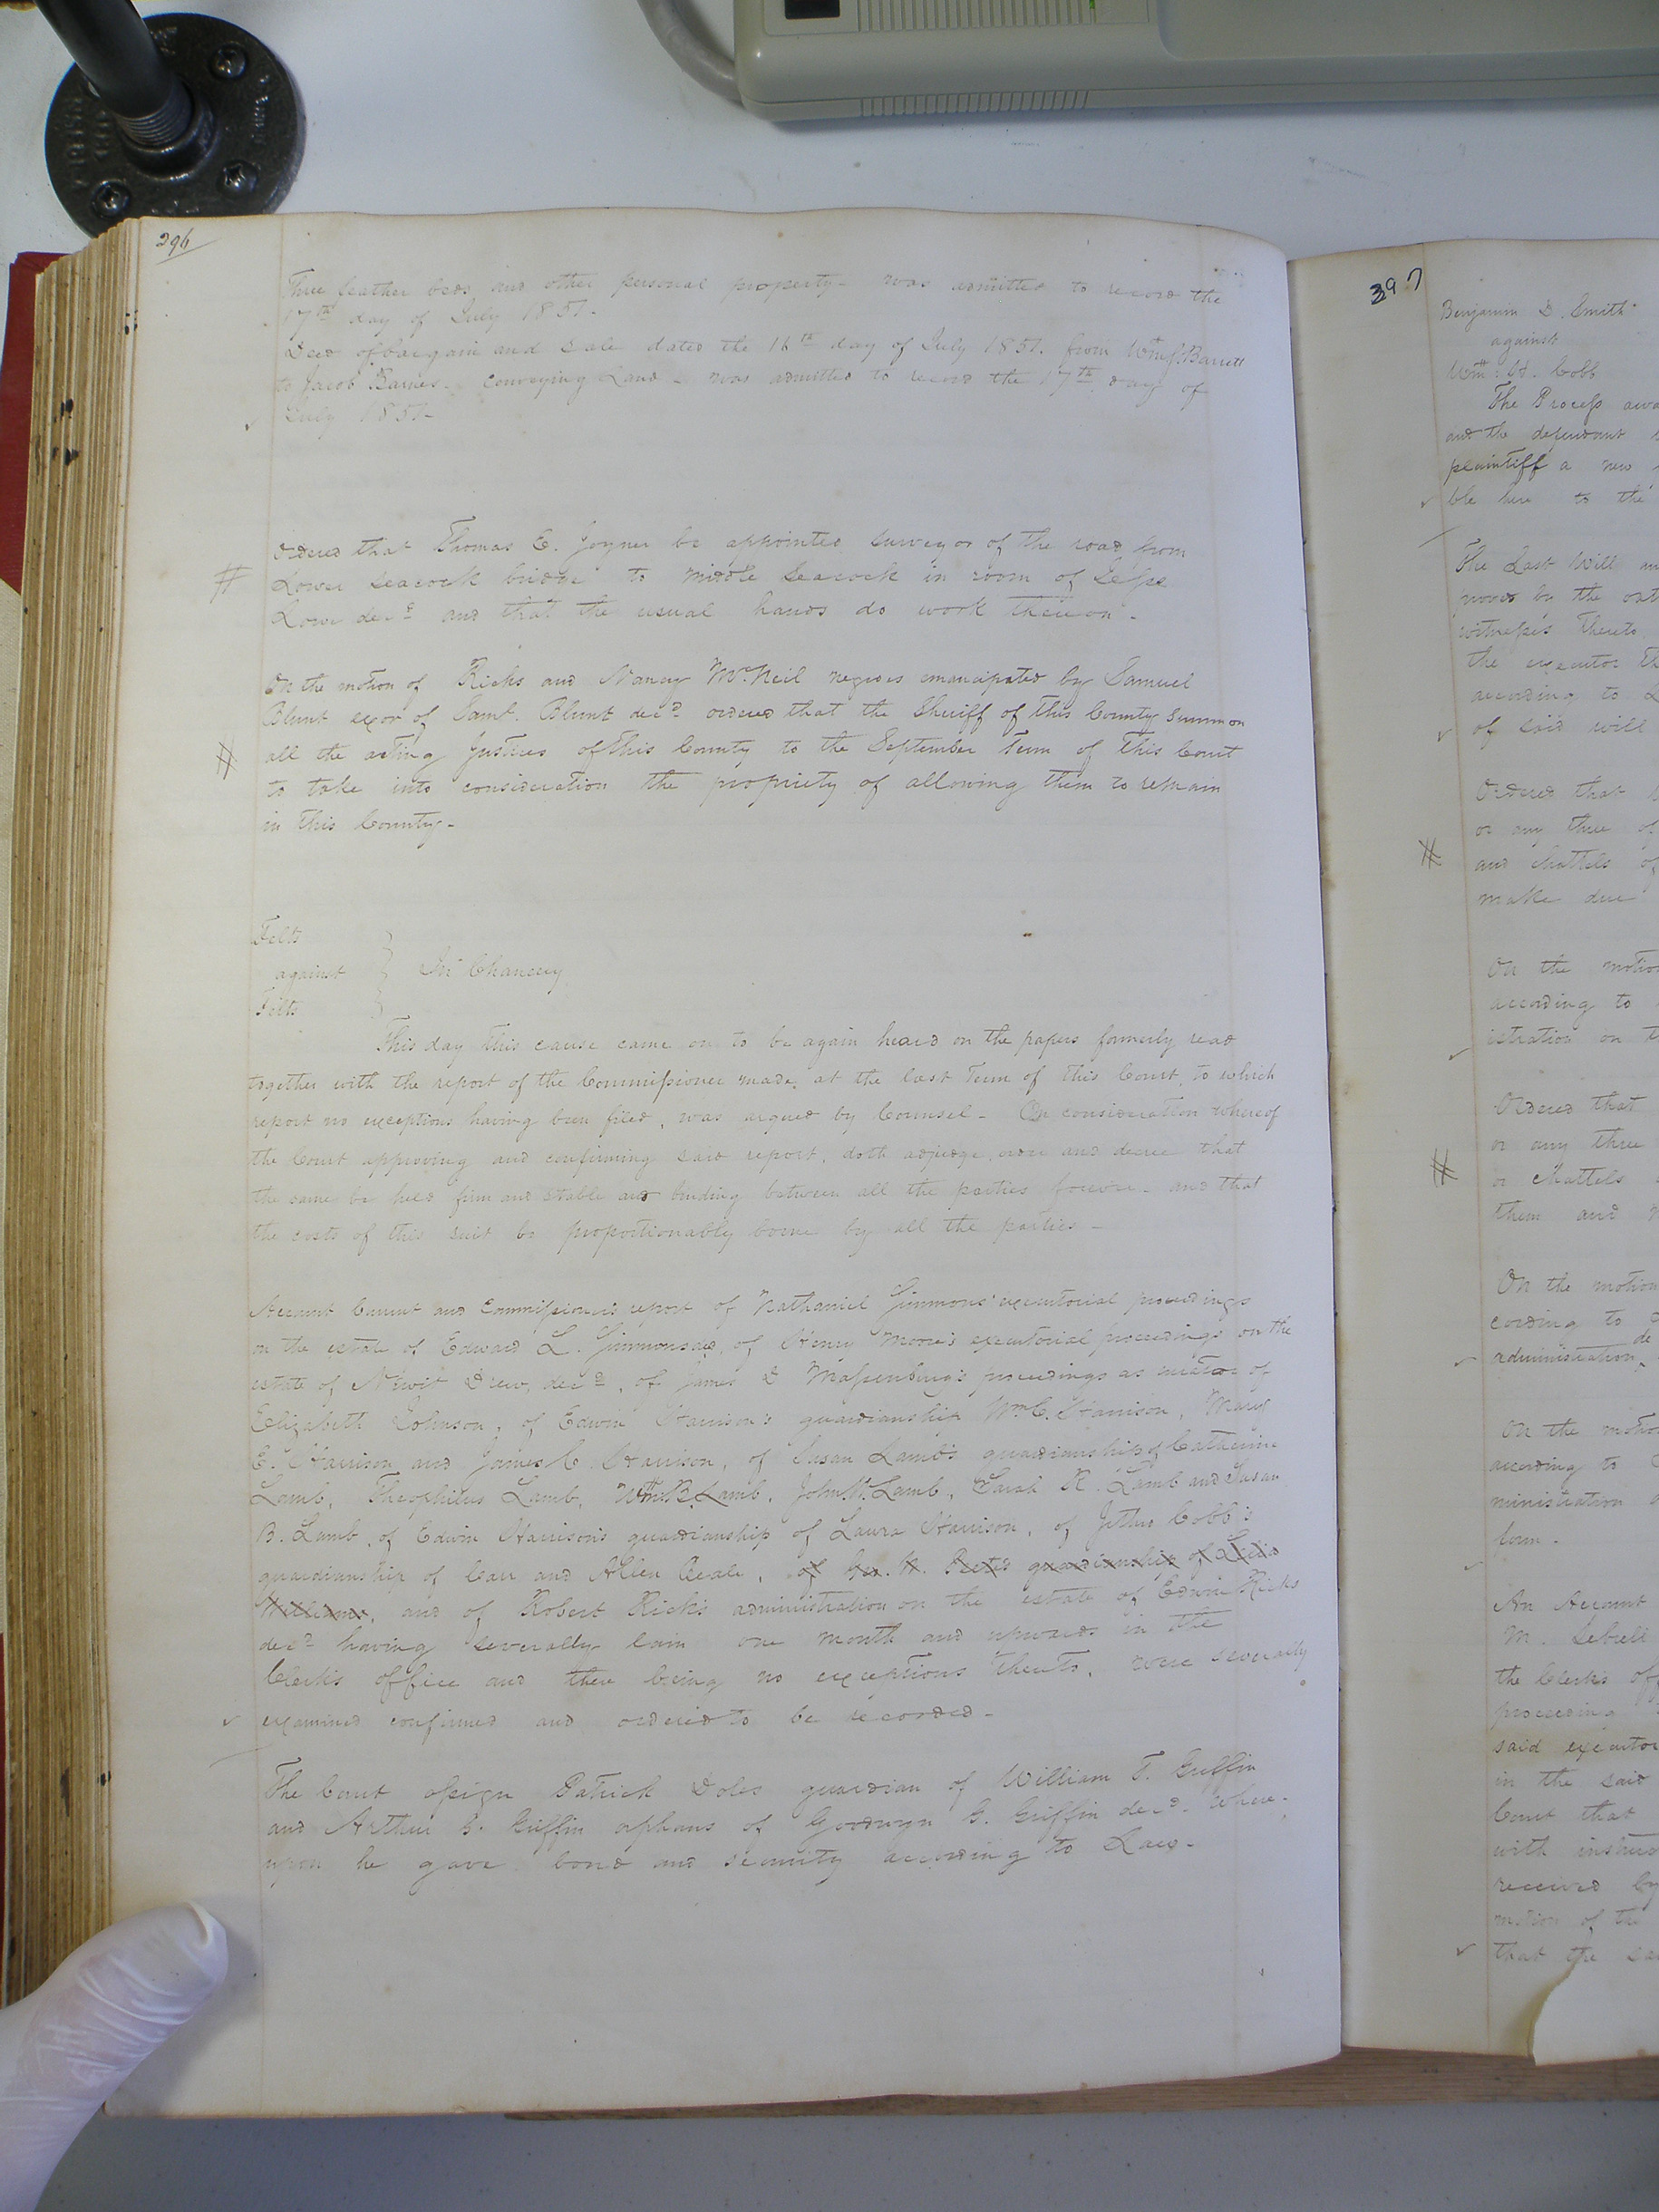 296
Three feather beds and other personal property - was admitted to record the
17th day of July 1851.
Deed of bargain and sale dated the 16th day of July 1851. from Wm J. Barrett
to Jacob Barnes - conveying Land - was admitted to record the 17th day of
July 1851-
Ordered that Thomas E. Joyner be appointed surveyor of the road from
Lower Seacock bridge to middle Seacock in room of Jesse
Lowe decd and that the usual hands do work thereon-
On the motion of Ricks and Nancy McNeil negroes emancipated by Samuel
Blunt exor of Saml. Blunt decd ordered that the Sheriff of this County summon
all the acting Justices of this County to the September Term of this Court
to take into consideration the propriety of allowing them to remain
in this County-
Felts
against } In Chancery
Felts
This day this cause came on to be again heard on the papers formerly read
together with the report of the Commissioner made, at the last Term of this Court, to which
report no exceptions having been filed, was argued by Counsel- On consideration whereof
the Court approving and confirming said report, doth adjudge, order and decree that
the same be held firm and stable and binding between all the parties forever- and that
the costs of this suit be proportionably borne by all the parties-
Account Current and Commissioner's report of Nathaniel Simmons' executorial proceedings
on the estate of Edward L. Simmons decd, of Henry Moore's executorial proceedings on the
estate of Newit Drew, decd, of James D Massenburg's proceedings as of
Elizabeth Johnson, of Edwin Harrison's guardianship Wm. C. Harrison, Mary
E. Harrison and James C Harrison, of Susan Lamb's guardianship of Catherine
Lamb, Theophilus Lamb, Wm. B. Lamb, John W. Lamb, Sarah R. Lamb and Susan
B. Lamb, of Edwin Harrison's guardianship of Laura Harrison, of Jethro Cobb's
guardianship of and Beale, of Geo. W. guardianship of
Williams, and of Robert Ricks administration on the estate of Edwin Ricks
decd having severally lain one month and upwards in the
Clerk's office and there being no exceptions thereto, were severally
examined confirmed and ordered to be recorded-
The Court assign Patrick Doles guardian of William T. Griffin
and Arthur G. Griffin orphans of Goodwyn G. Griffin decd. where-
upon he gave bond and security according to Law-
397
Benjamin D. Smith
against
Wm. H. Cobb
The Process
and the defendant
plaintiff a new
ble here to the
The Last Will
proved by the
witnesses thereto
the executor
according to
of said will
Ordered that
or any three of
and chattels of
make due
On the motion
according to
istration on
Ordered that
or any three
or chattels
them and
On the motion
cording to
de
administration
On the motion
according to
ministration
form-
An Account
M. Sebrell
the Clerks
proceeding
said executor
in the said
Court that
with
received by
motion of the
that the